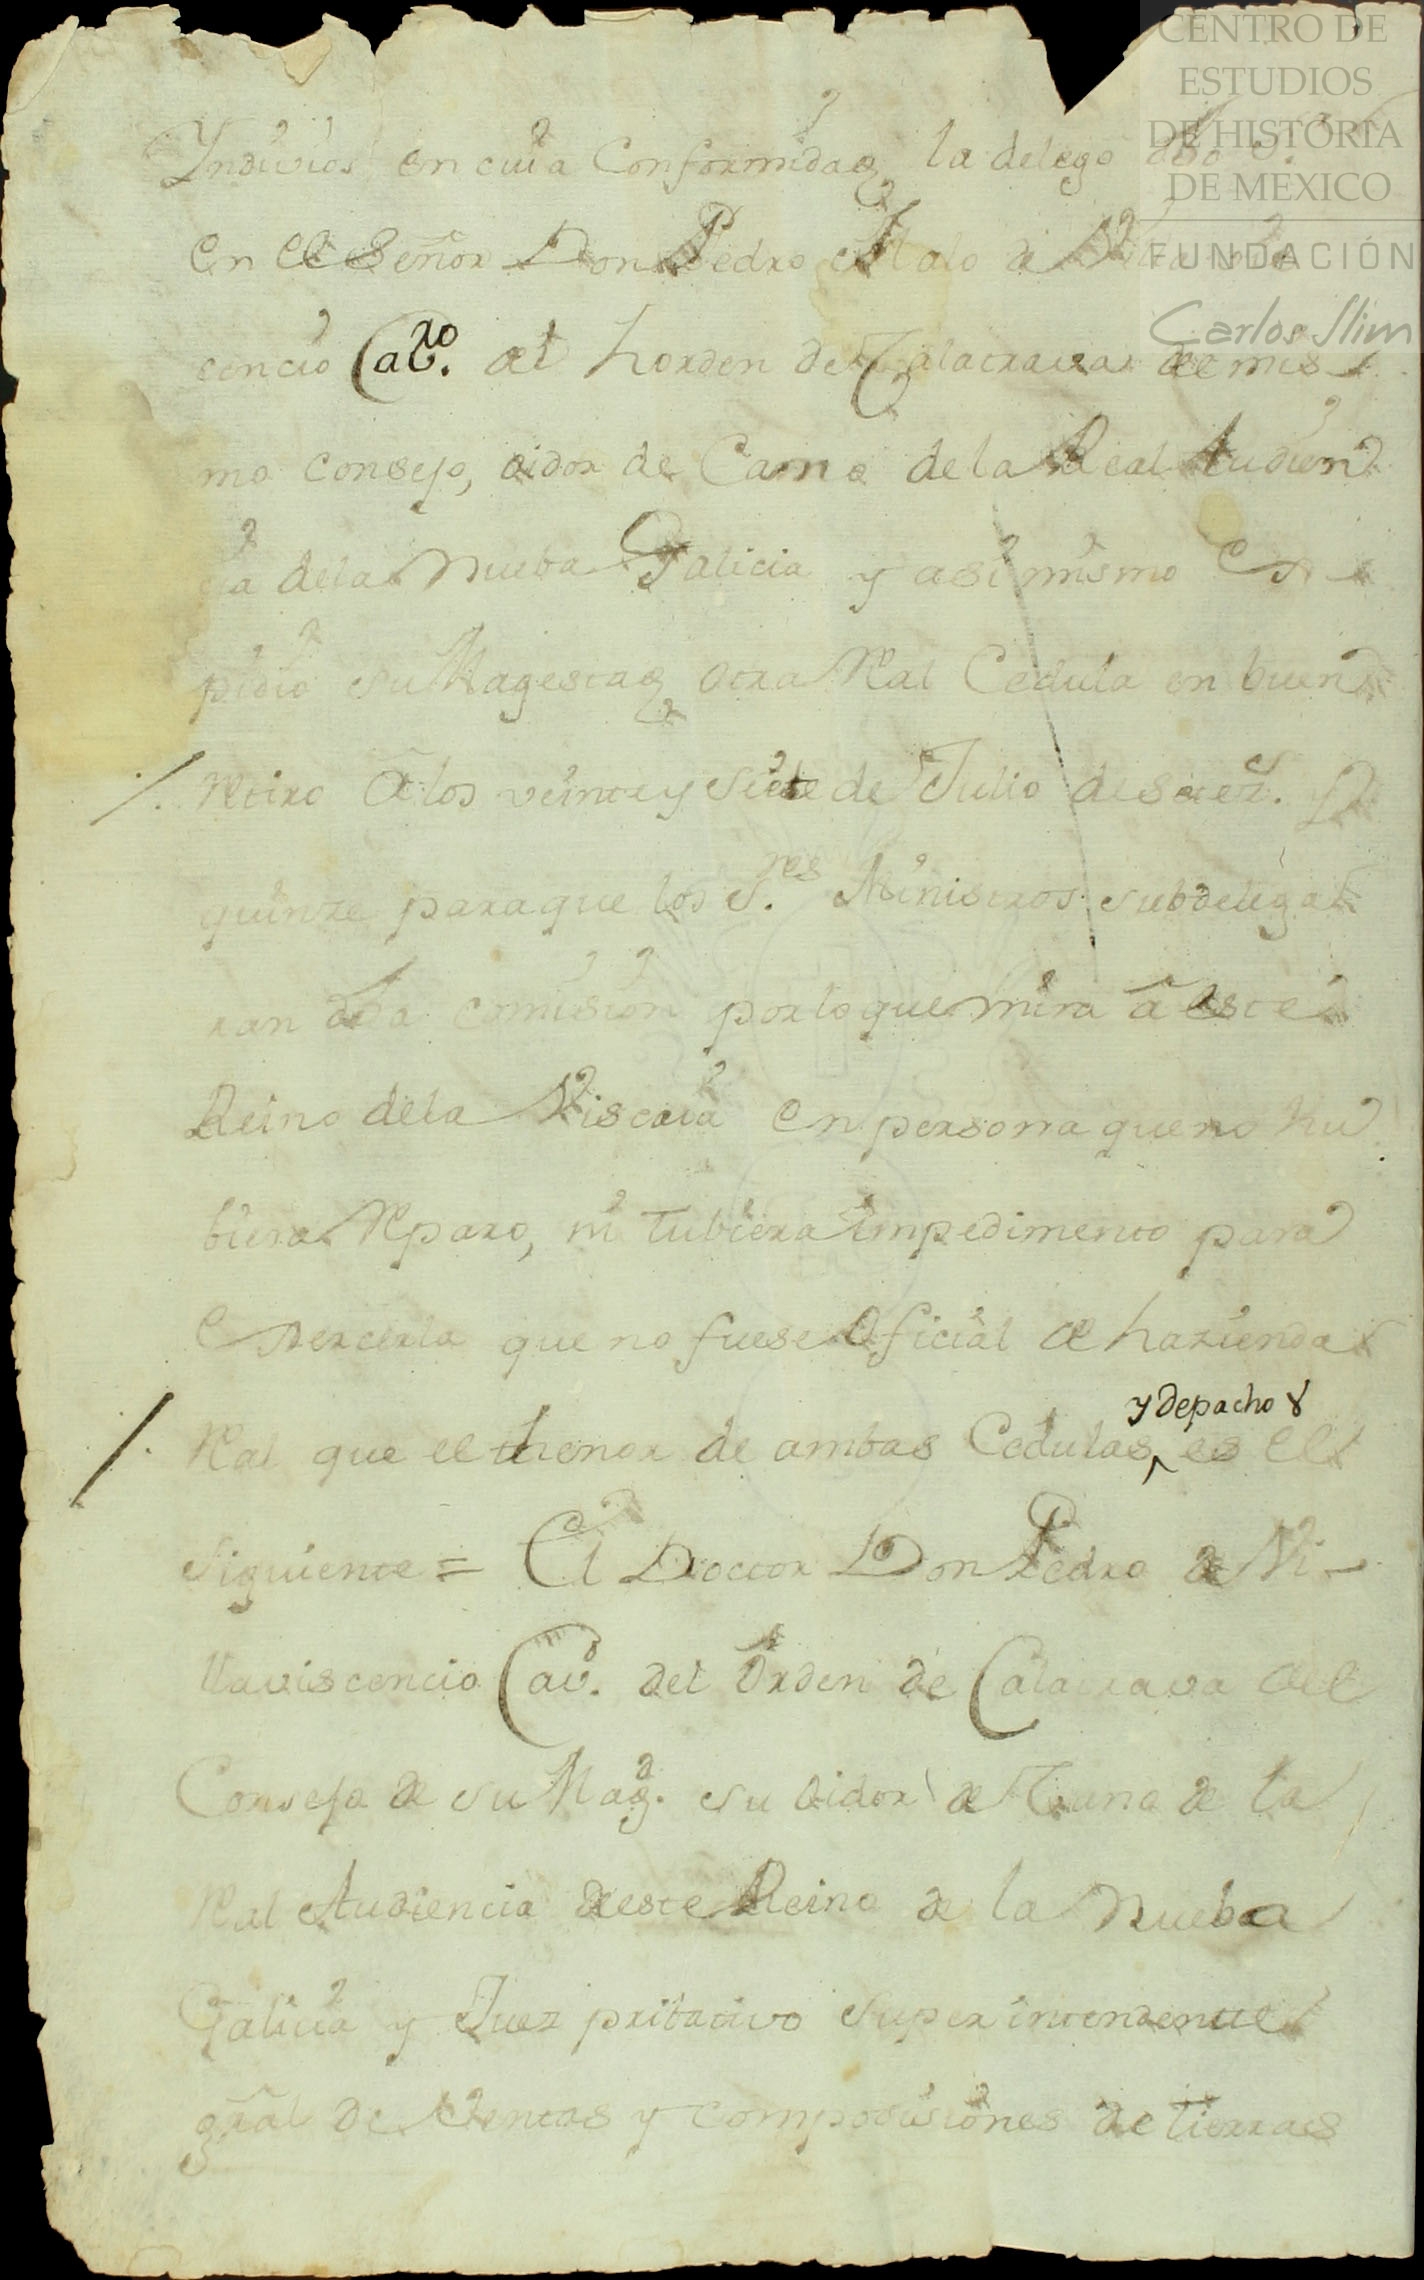 CENTRO DE
ESTUDIOS
DE HISTORIA
DE MÉXICO
FUNDACIÓN
Carlos Slim
Yndivios en cuia Conformidad la delego dho S.
en el Señor Don Pedro Malo de
cencio Cavro. del horden de Calatrava del mis
mo Consejo, oidor de Cama de la Real Audien
cia de la Nueba Galicia y asi mismo Ex
pidio su Magestad otra Ral Cedula en buen
Retiro â los veinte y siete de Julio de setez.s y
quinze para que los S.res Ministros subdelega
ran dha comision por lo que mira â este
Reino de la Viscaia en persona que no hu
biera Reparo, ni tubiera impedimento para
Exercerla que no fuese Oficial de hazienda
Ral que el thenor de ambas Cedulas, y depacho s es el
siguiente = El Doctor Don Pedro de Vi-
llaviscencio Cavo. del Orden de Calatrava del
Consejo de su Magd. su oidor de la
Ral Audiencia deste Reino de la Nueba
Galicia y Juez pribativo Superintendente
gral de Ventas y composisiones de tierras